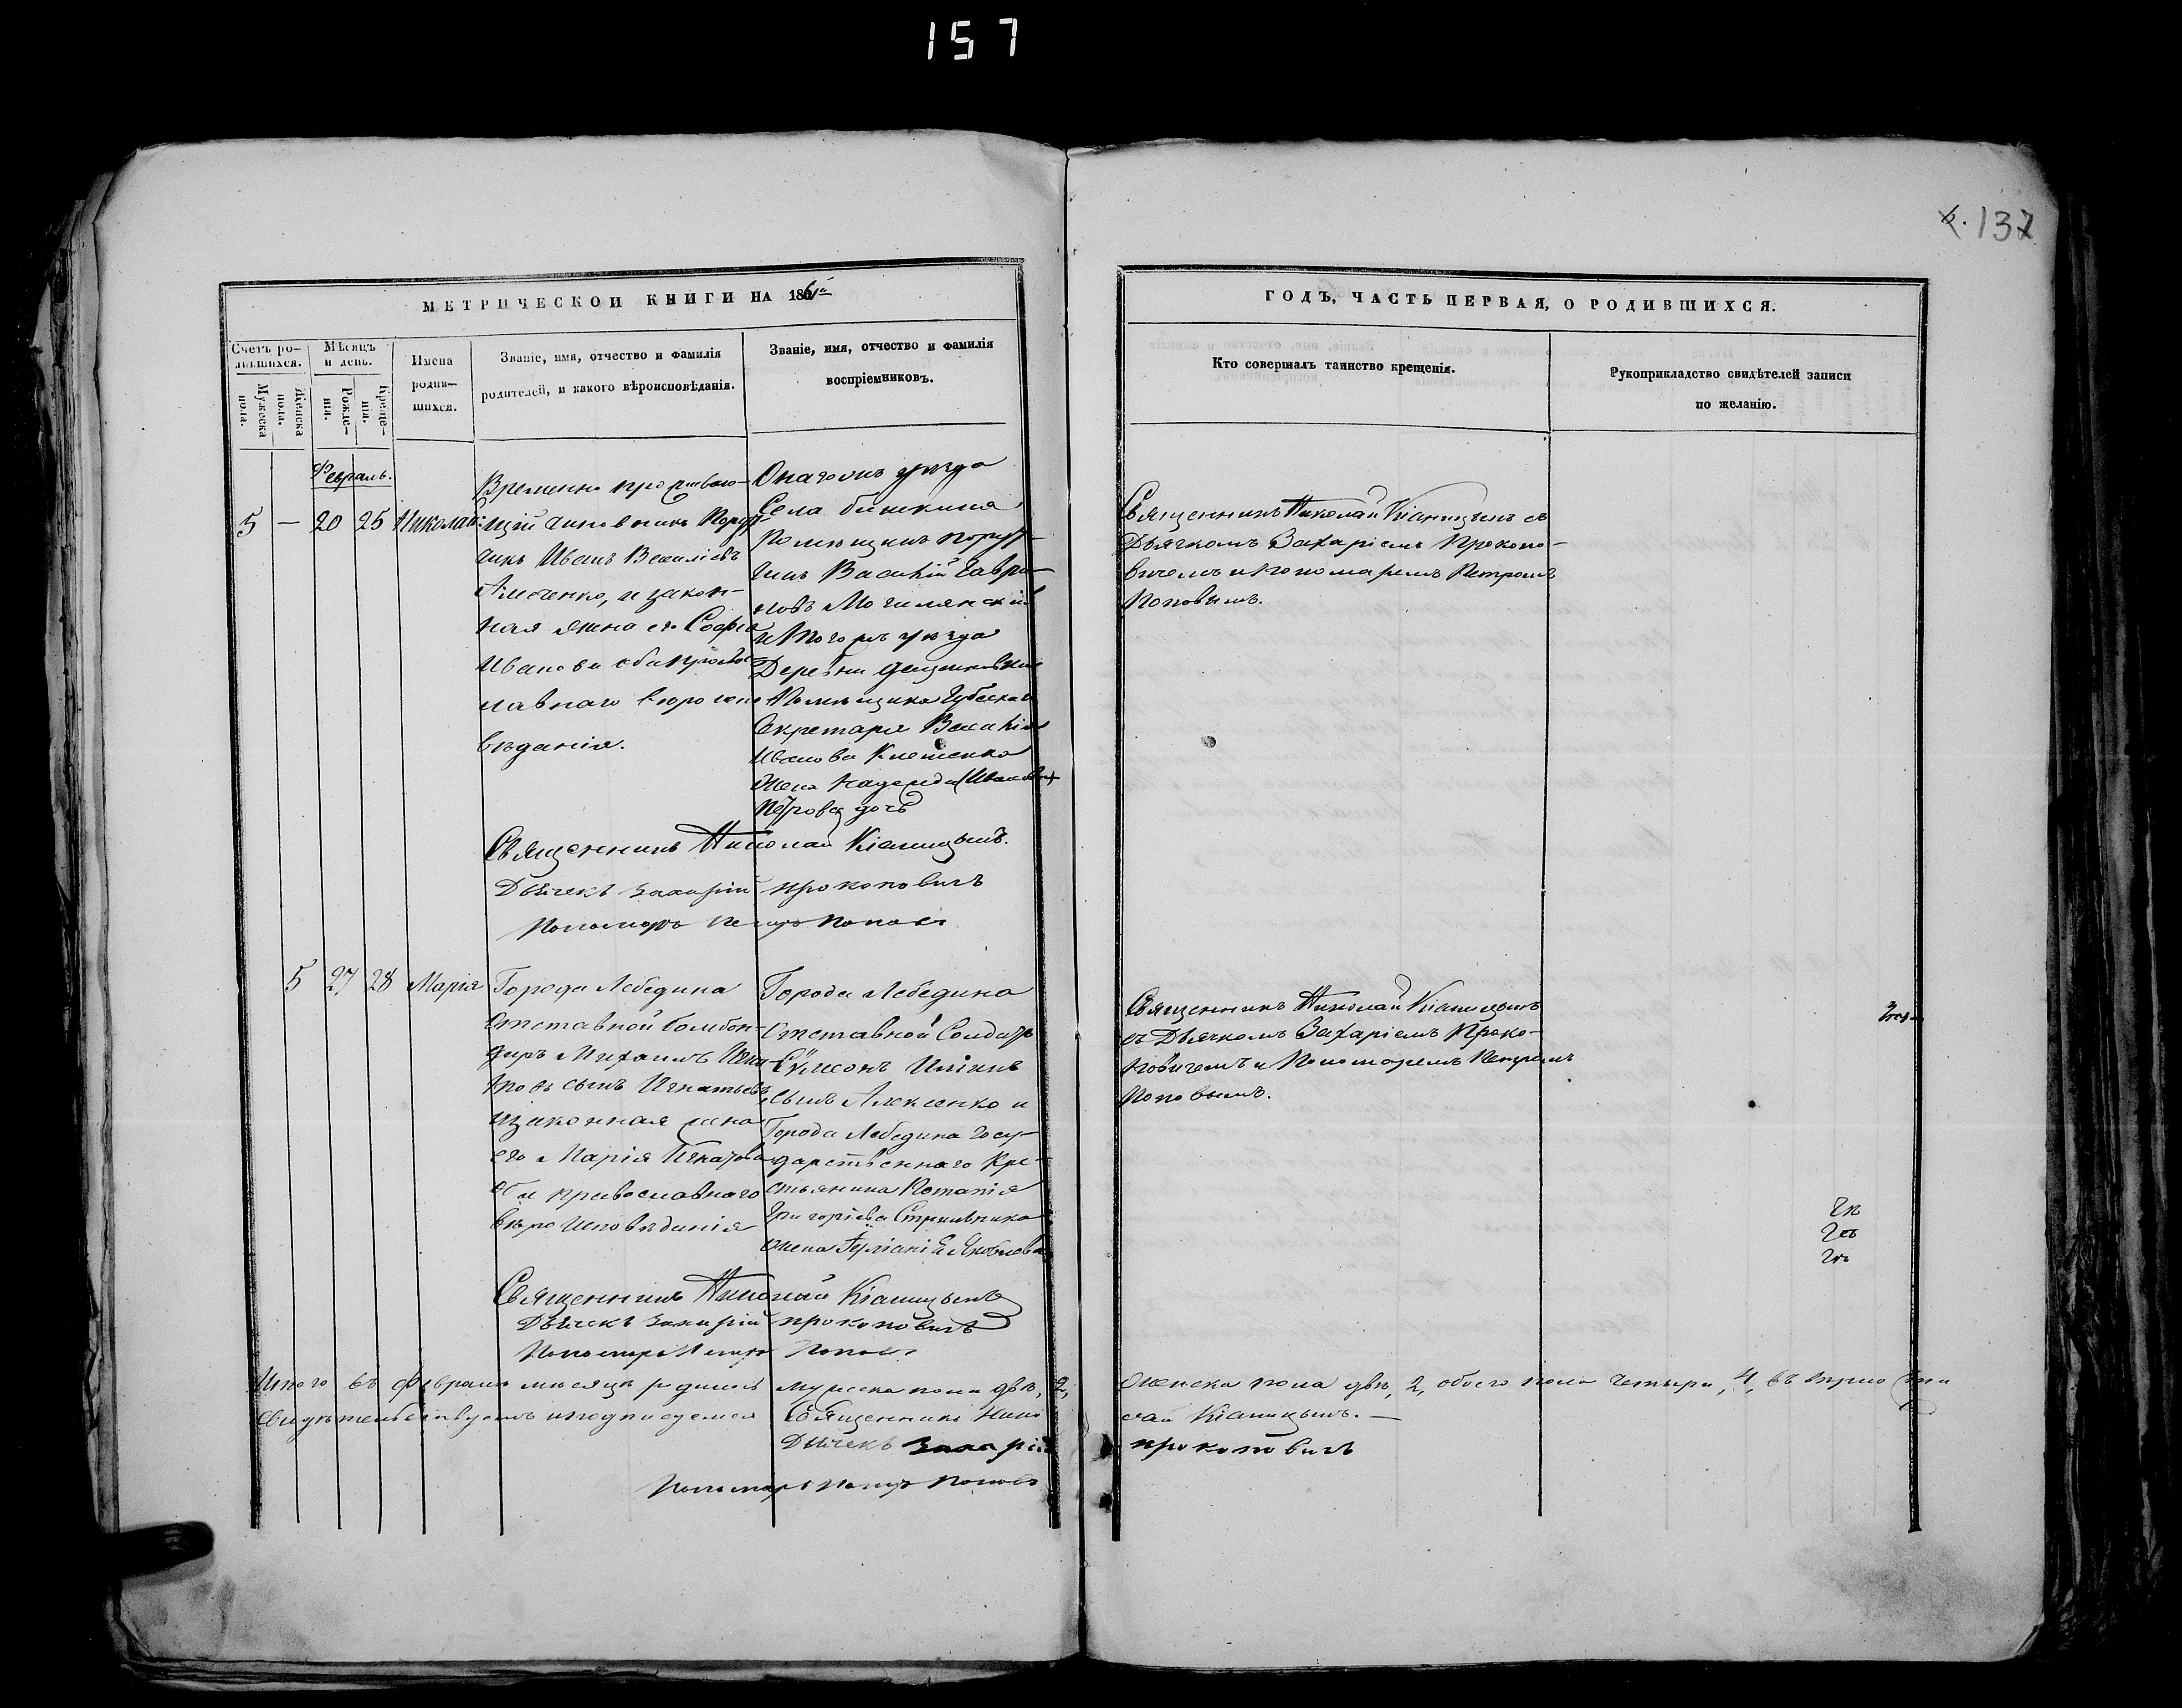 157
137
МЕТРИЧЕСКОЙ КНИГИ НА 1861й
ГОДЪ, ЧАСТЬ ПЕРВАЯ, О РОДИВШИХСЯ.
Счетъ ро-
дившихся.
Мужеска
пола.
Женска
пола.
Мѣсяцъ
и день.
Рожде-
нія.
Креще-
нія.
Имена
родив-
шихся.
Званіе, имя, отчество и фамилія
родителей, и какого вѣроисповѣданія.
Званіе, имя, отчество и фамилія
воспріемниковъ.
Кто совершалъ таинство крещенія.
Рукоприкладство свидѣтелей записи
по желанію.
Февраль.
5 — 20 25 Николай
Временно проживаю-
щій чиновникъ Пору-
чикъ Иванъ Василіевъ
и закон-
ная жена его Софія
Иванова оба правос-
лавнаго вѣроиспо-
вѣданія.
уѣзда
Села бишкиня
Помѣщикъ Пору-
чикъ Василій Гаври-
ловъ Могилянскій
и того жъ уѣзда
Деревни
Помѣщика Губерскаго
Секретаря Василія
Иванова
жена Надежда
Петрова дочь
Священникъ Николай Кіаницынъ съ
Дьячкомъ Захаріемъ Прокопо-
вичемъ и пономаремъ Петромъ
Поповымъ.
Священникъ Николай Кіаницынъ.
Дьячекъ Захарій прокоповичъ
Пономарь Петръ Поповъ
5 27 28 Марія
Города Лебедина
Отставной бомбон-
диръ Михаилъ
сынъ Игнатьевъ
и законная жена
его Марія Игнатова
оба православнаго
вѣроисповѣданія
Города Лебедина
Отставной Солдатъ
Сѵмеонъ Иліинъ
сынъ Алексенко и
Города Лебедина Госу-
дарственнаго Кре-
стьянина Потапія
Григоріева Стрильника
жена Яковлева
Священникъ Николай Кіаницынъ
съ Дьячкомъ Захаріемъ Проко-
повичемъ и Пономаремъ Петромъ
Поповымъ.
Священникъ Николай Кіаницынъ
Дьячекъ Захарій прокоповичъ
Пономарь Петръ Поповъ
Итого въ Февралѣ мѣсяцѣ родилось мужеска пола два, 2, женска пола двѣ, 2, обоего пола четыре, 4, въ
свидѣтельствуемъ и подписуемся Священникъ Николай Кіаницынъ. —
Дьячекъ Захарій прокоповичъ
Пономарь Петръ Поповъ